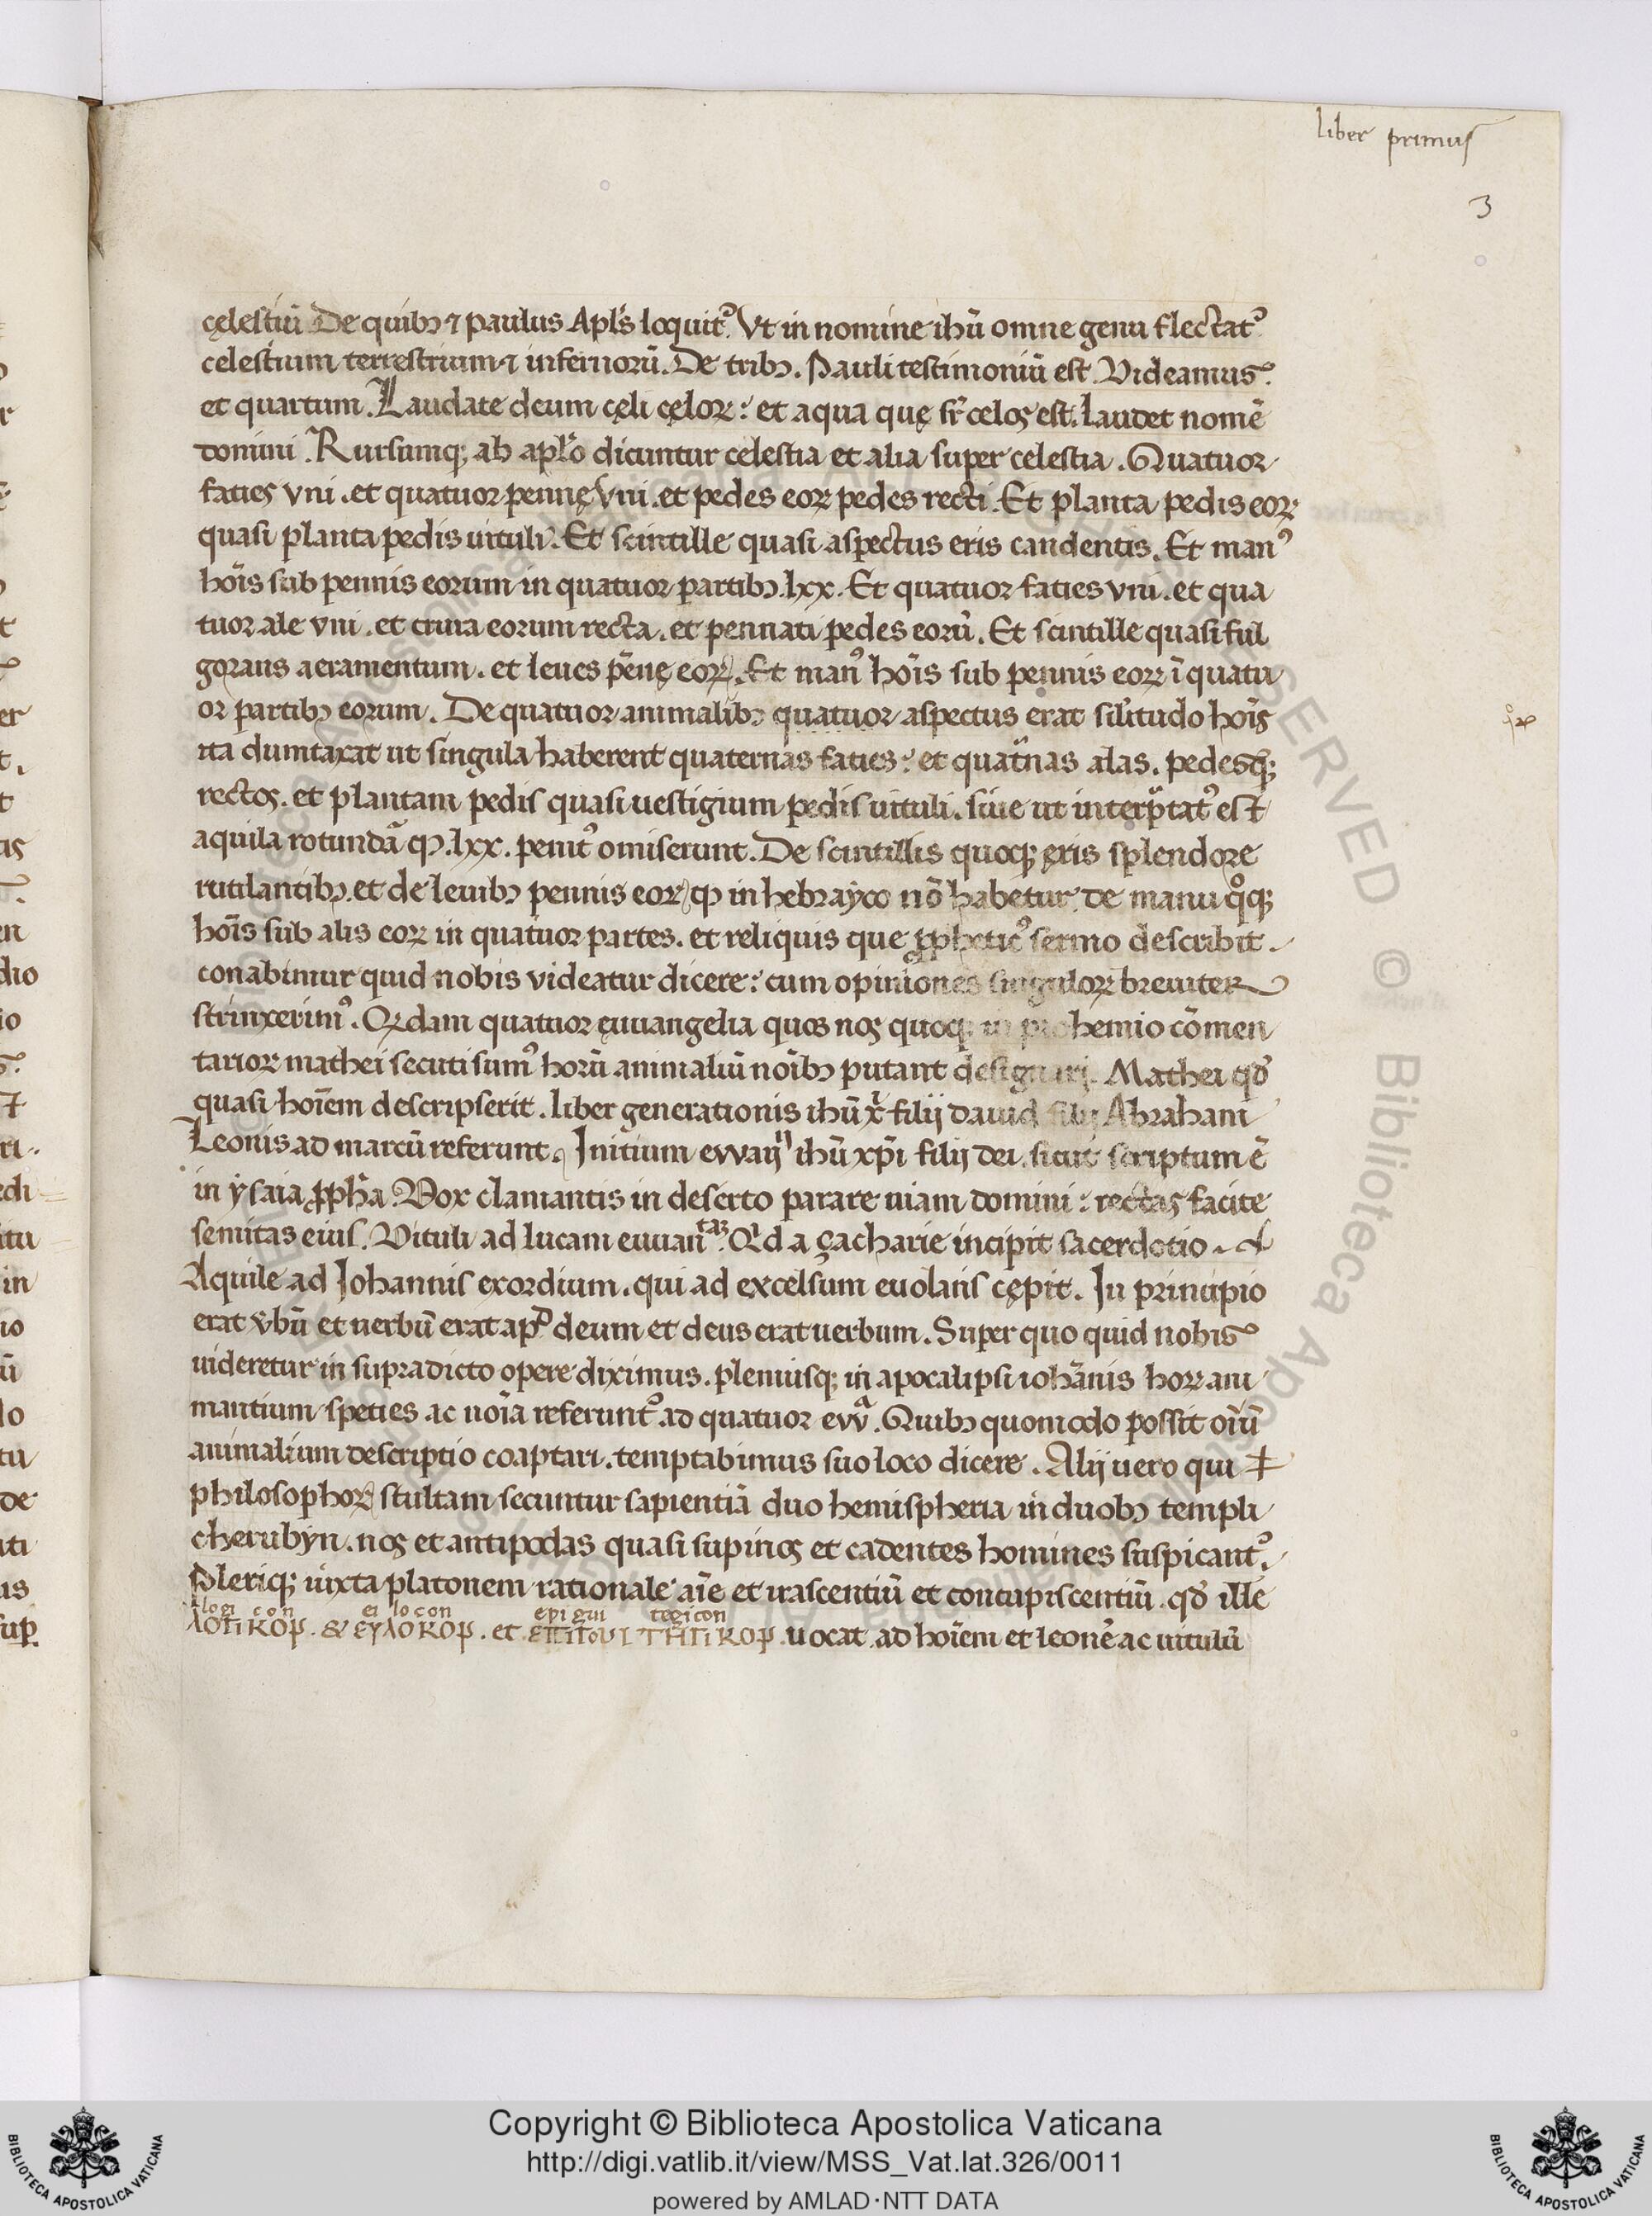 liber primus
3
cęlestiū De quibꝫ ⁊ paulus Apls̄ loquit᷒. Vt in nomine ihū omne genu flectat᷒
celestium terrestrium ⁊ infernorū. De tribꝫ. Pauli testimoniū est. Videamus.
et quartum. Laudate deum cęli cęloꝝ: et aqua quę sr̄ celos est. laudet nomē
domini. Rursumqꝫ ab apl̄o dicuntur celestia et alia super celestia. Quatuor
faties vni. et quatuor pennę vni. et pedes eoꝝ pedes recti. Et planta pedis eoꝝ
quasi planta pedis uituli. Et scintille quasi aspectus eris candentis. Et manꝰ
hoīs sub pennis eorum in quatuor partibꝫ. lxx. Et quatuor faties vni. et qua
tuor ale vni. et crura eorum recta. et pennati pedes eorū. Et scintille quasi ful
gorans aeramentum. et leues pēnę eoꝝ. Et manꝰ hoīs sub pennis eoꝝ ī quatu
or partibꝫ eorum. De quatuor animalibꝫ quatuor aspectus erat sil'itudo hoīs
ita dumtaxat ut singula haberent quaternas faties: et quat̄nas alas. pedesqꝫ
rectos. et plantam pedis quasi uestigium pedis uituli. siue ut interp̄tatꝰ est
aquila rotundā ꝙ. lxx. penitꝰ omiserunt. De scintillis quoqꝫ ęris splendore
rutilantibꝫ. et de leuibꝫ pennis eoꝝ ꝙ in hebrayco nō habetur. de manu qͦqꝫ
hoīs sub alis eoꝝ in quatuor partes. et reliquis que ꝓphеticꝰ sermo describit.
conabimur quid nobis videatur dicere: cum opiniones singuloꝝ breuiter
strinxerimꝰ. Qꝫdam quatuor ęuuangelia quos nos quoqꝫ in prohemio cōmen
tarioꝝ mathei secuti sumꝰ horū animaliū noībꝫ putant designari. Mathei qđ
quasi hoīem descripserit. liber generationis ihū xͥ filij dauid filij Abraham
Leonis ad marcū referunt. Initium evvaɳ̄ ihū xp̄i filij dei. sicut scriptum ē
in ysaia ꝓph̄a. Vox clamantis in deserto parare uiam domini: rectas facite
semitas eius. Vituli ad lucam euuan̄ Qđ a çacharie incipit sacerdotio.
Aquile ad Iohannis exordium. qui ad excelsum euolans cępit. In principio
erat v̄bū et uerbū erat apᵈ deum et deus erat uerbum. Super quo quid nobis
uideretur in supradicto opere diximus. pleniusqꝫ in apocalipsi iohānis hoꝝ ani
mantium speties ac noīa referuntꝰ ad quatuor evvᵃ. Quibꝫ quomodo possit oīū
animalium descriptio coaptari. temptabimus suo loco dicere. Alij uero qui
philosophoꝝ stultam secuntur sapientiā duo hemispheria in duobꝫ templi
cherubyn. nos et antipodas quasi supinos et cadentes homines suspicantꝰ.
Pleriqꝫ iuxta platonem rationale aīe et irascentiū et concupiscentiū. qđ ille
logi con ei locon epi gui tegicon
ΛΟΓΙΚΟΡ. & ΕΥΛΟΚΟΡ. et ΕΠΙΓΟΥΙ ΤΗΓΙΚΟΡ uocat. ad hoīem et leonē ac uitulū
Copyright © Biblioteca Apostolica Vaticana
http://digi.vatlib.it/view/MSS_Vat.lat.326/0011
powered by AMLAD·NTT DATA
BIBLIOTECA APOSTOLICA VATICANA
BIBLIOTECA APOSTOLICA VATICANA